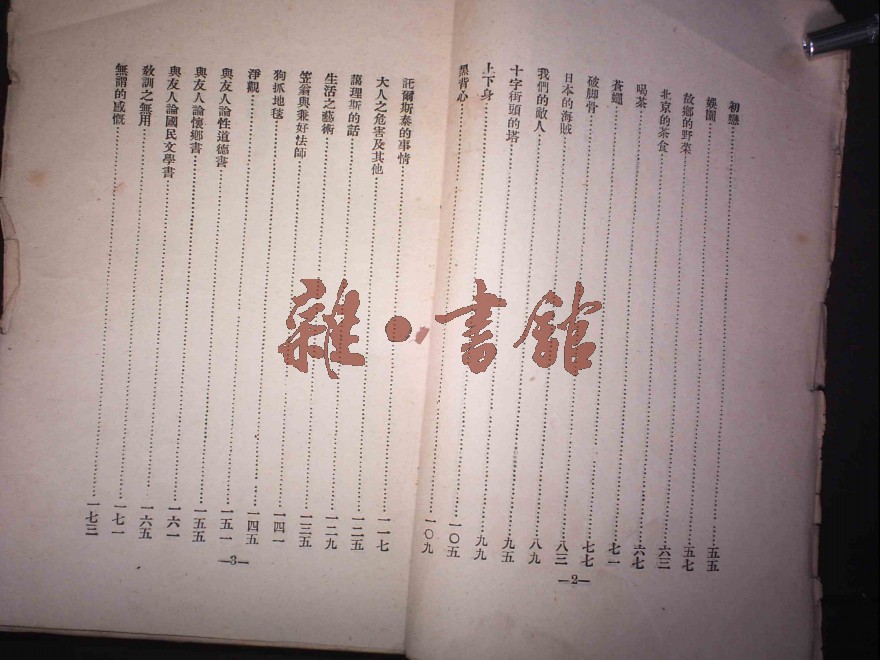 初戀……五五
娛園……五七
故鄉的野菜……六三
北京的茶食……六七
喝茶……七一
蒼蠅……七七
破脚骨……八三
日本的海賊……八九
我們的敵人……九五
十字街頭的塔……九九
上下身……一〇五
黑背心……一〇九
—2—
託爾斯泰的事情……一一七
大人之危害及其他……一二五
藹理斯的話……一二九
生活之藝術……一三五
笠翁與兼好法師……一四一
狗抓地毯……一四五
淨觀……一五一
與友人論性道德書……一五五
與友人論懷鄉書……一六一
與友人論國民文學書……一六五
教訓之無用……一七一
無謂的感慨……一七三
—3—
雜·書館